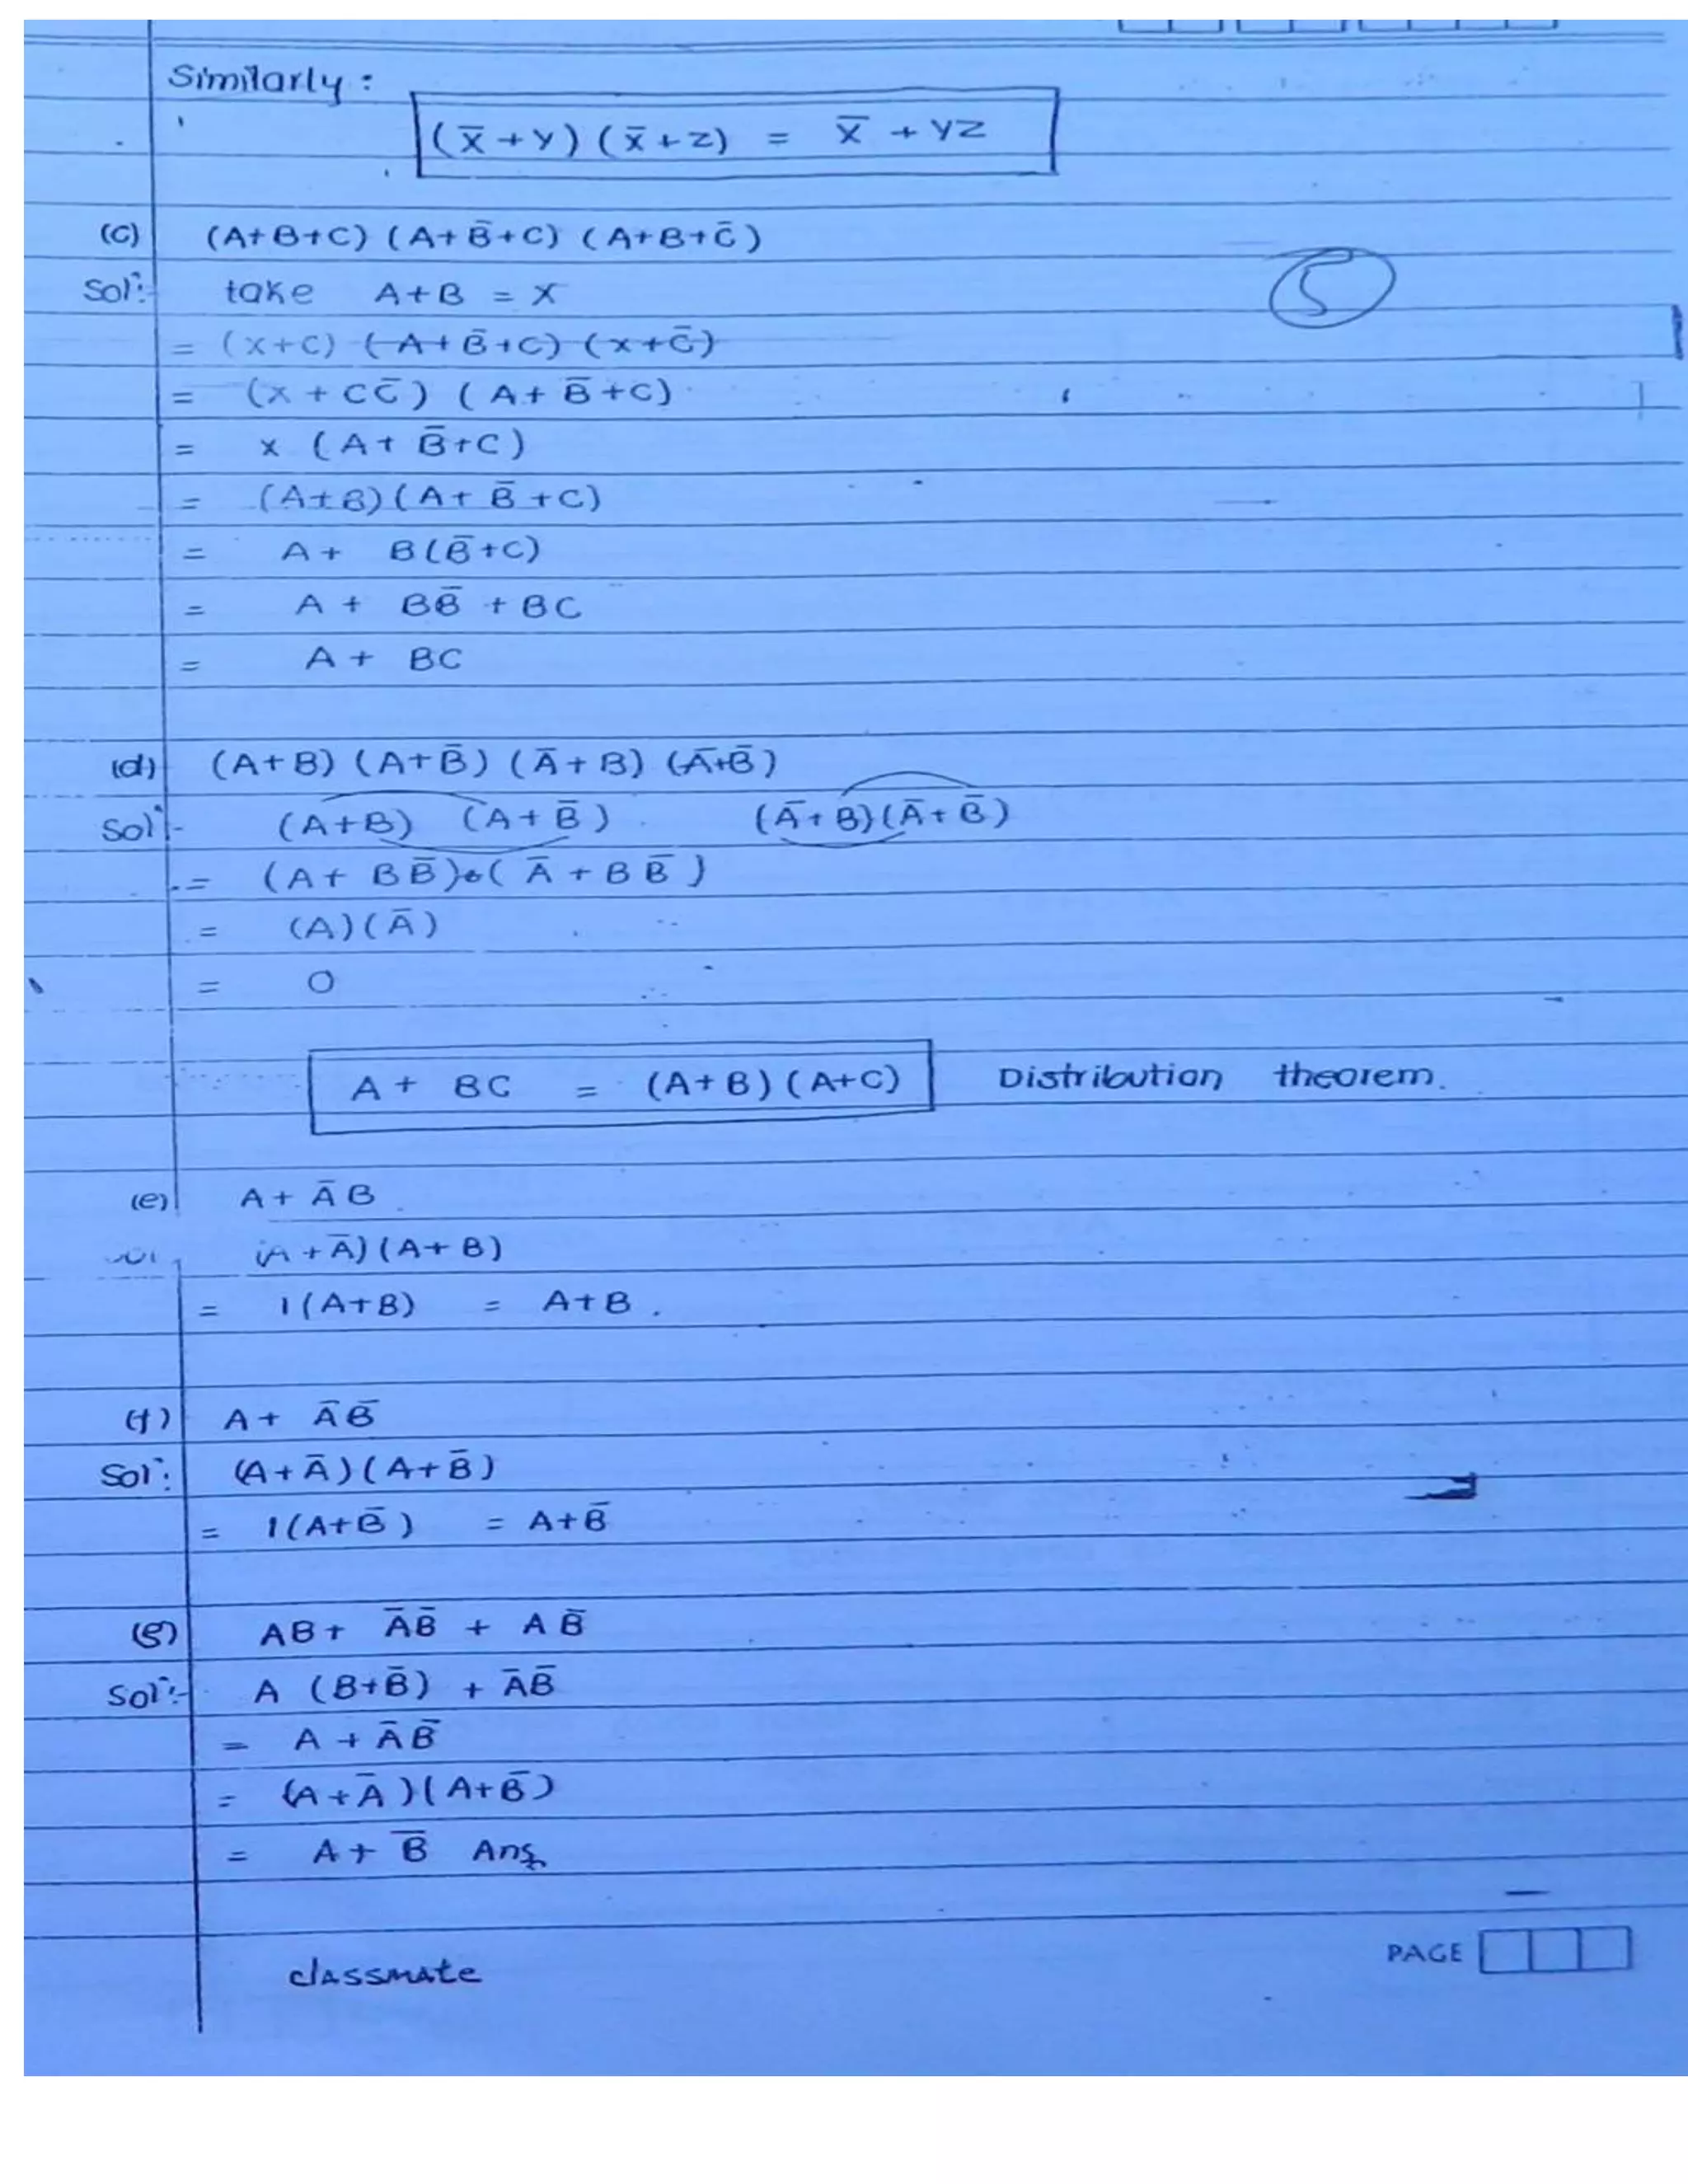 Similarly :
(x̅ + y) (x̅ + z) = x̅ + yz
(c) (A+B+C) (A+B̅+C) (A+B+C̅)
5
Solⁿ:- take A+B = x
= (x+C) (A+B̅+C) (x+C̅)
= (x + CC̅) (A+ B̅+C)
= x (A+ B̅+C)
= (A+B)(A+ B̅+C)
= A+ B(B̅+C)
= A + BB̅ + BC
= A + BC
(d) (A+B) (A+B̅) (A̅+B) (A̅+B̅)
Solⁿ- (A+B) (A+B̅) (A̅+B)(A̅+B̅)
= (A+ BB̅)•(A̅ + BB̅)
= (A)(A̅)
= 0
A + BC = (A+B)(A+C) Distribution theorem.
(e) A+ A̅B
(A +A̅)(A+B)
= 1(A+B) = A+B.
(f) A+ A̅B̅
Solⁿ: (A+A̅)(A+B̅)
= 1(A+B̅) = A+B̅
(g) AB+ A̅B̅ + AB̅
Solⁿ:- A (B+B̅) + A̅B̅
= A + A̅B̅
= (A+A̅)(A+B̅)
= A+ B̅ Ans
classmate
PAGE